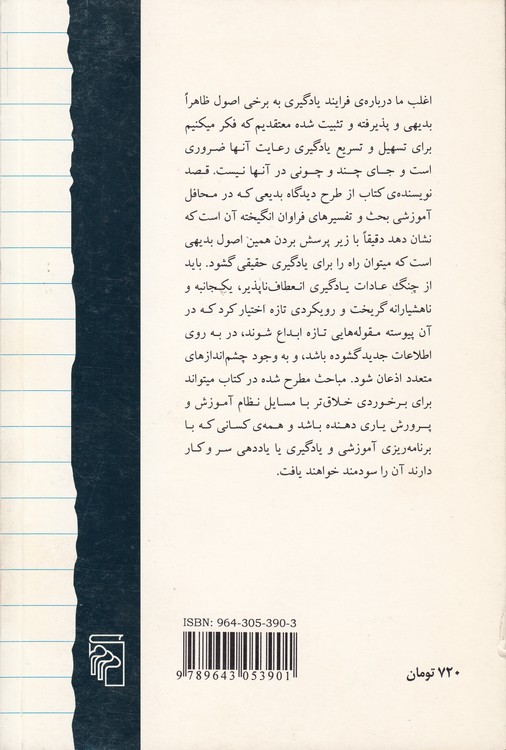 اغلب ما درباره‌ی فرایند یادگیری به برخی اصول ظاهراً
بدیهی و پذیرفته و تثبیت شده معتقدیم که فکر میکنیم
برای تسهیل و تسریع یادگیری رعایت آنها ضروری
است و جای چند و چونی در آنها نیست. قصد
نویسنده‌ی کتاب از طرح دیدگاه بدیعی که در محافل
آموزشی بحث و تفسیرهای فراوان انگیخته آن است که
نشان دهد دقیقاً با زیر پرسش بردن همین اصول بدیهی
است که میتوان راه را برای یادگیری حقیقی گشود. باید
از چنگ عادات یادگیری انعطاف‌ناپذیر، یکجانبه و
ناهشیارانه گریخت و رویکردی تازه اختیار کرد که در
آن پیوسته مقوله‌هایی تازه ابداع شوند، در به روی
اطلاعات جدید گشوده باشد، و به وجود چشم‌اندازهای
متعدد اذعان شود. مباحث مطرح شده در کتاب میتواند
برای برخوردی خلاق‌تر با مسایل نظام آموزش و
پرورش یاری دهنده باشد و همه‌ی کسانی که با
برنامه‌ریزی آموزشی و یادگیری یا یاددهی سر و کار
دارند آن را سودمند خواهند یافت.
ISBN: 964-305-390-3
9 789643 053901
۷۲۰ تومان